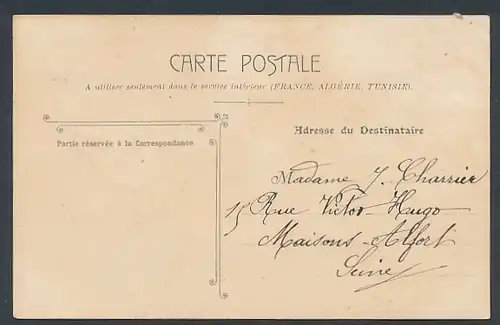 CARTE POSTALE
A utiliser seulement dans le service intérieur (FRANCE, ALGÉRIE, TUNISIE).
Partie réservée à la Correspondance
Adresse du Destinataire
Madame J. Charrier
15 Rue Victor-Hugo
Maisons-Alfort
Seine